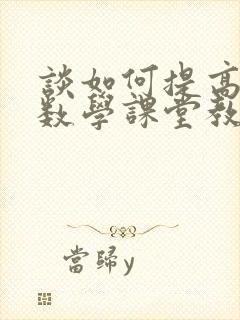 談如何提高
數學課堂教
當歸y